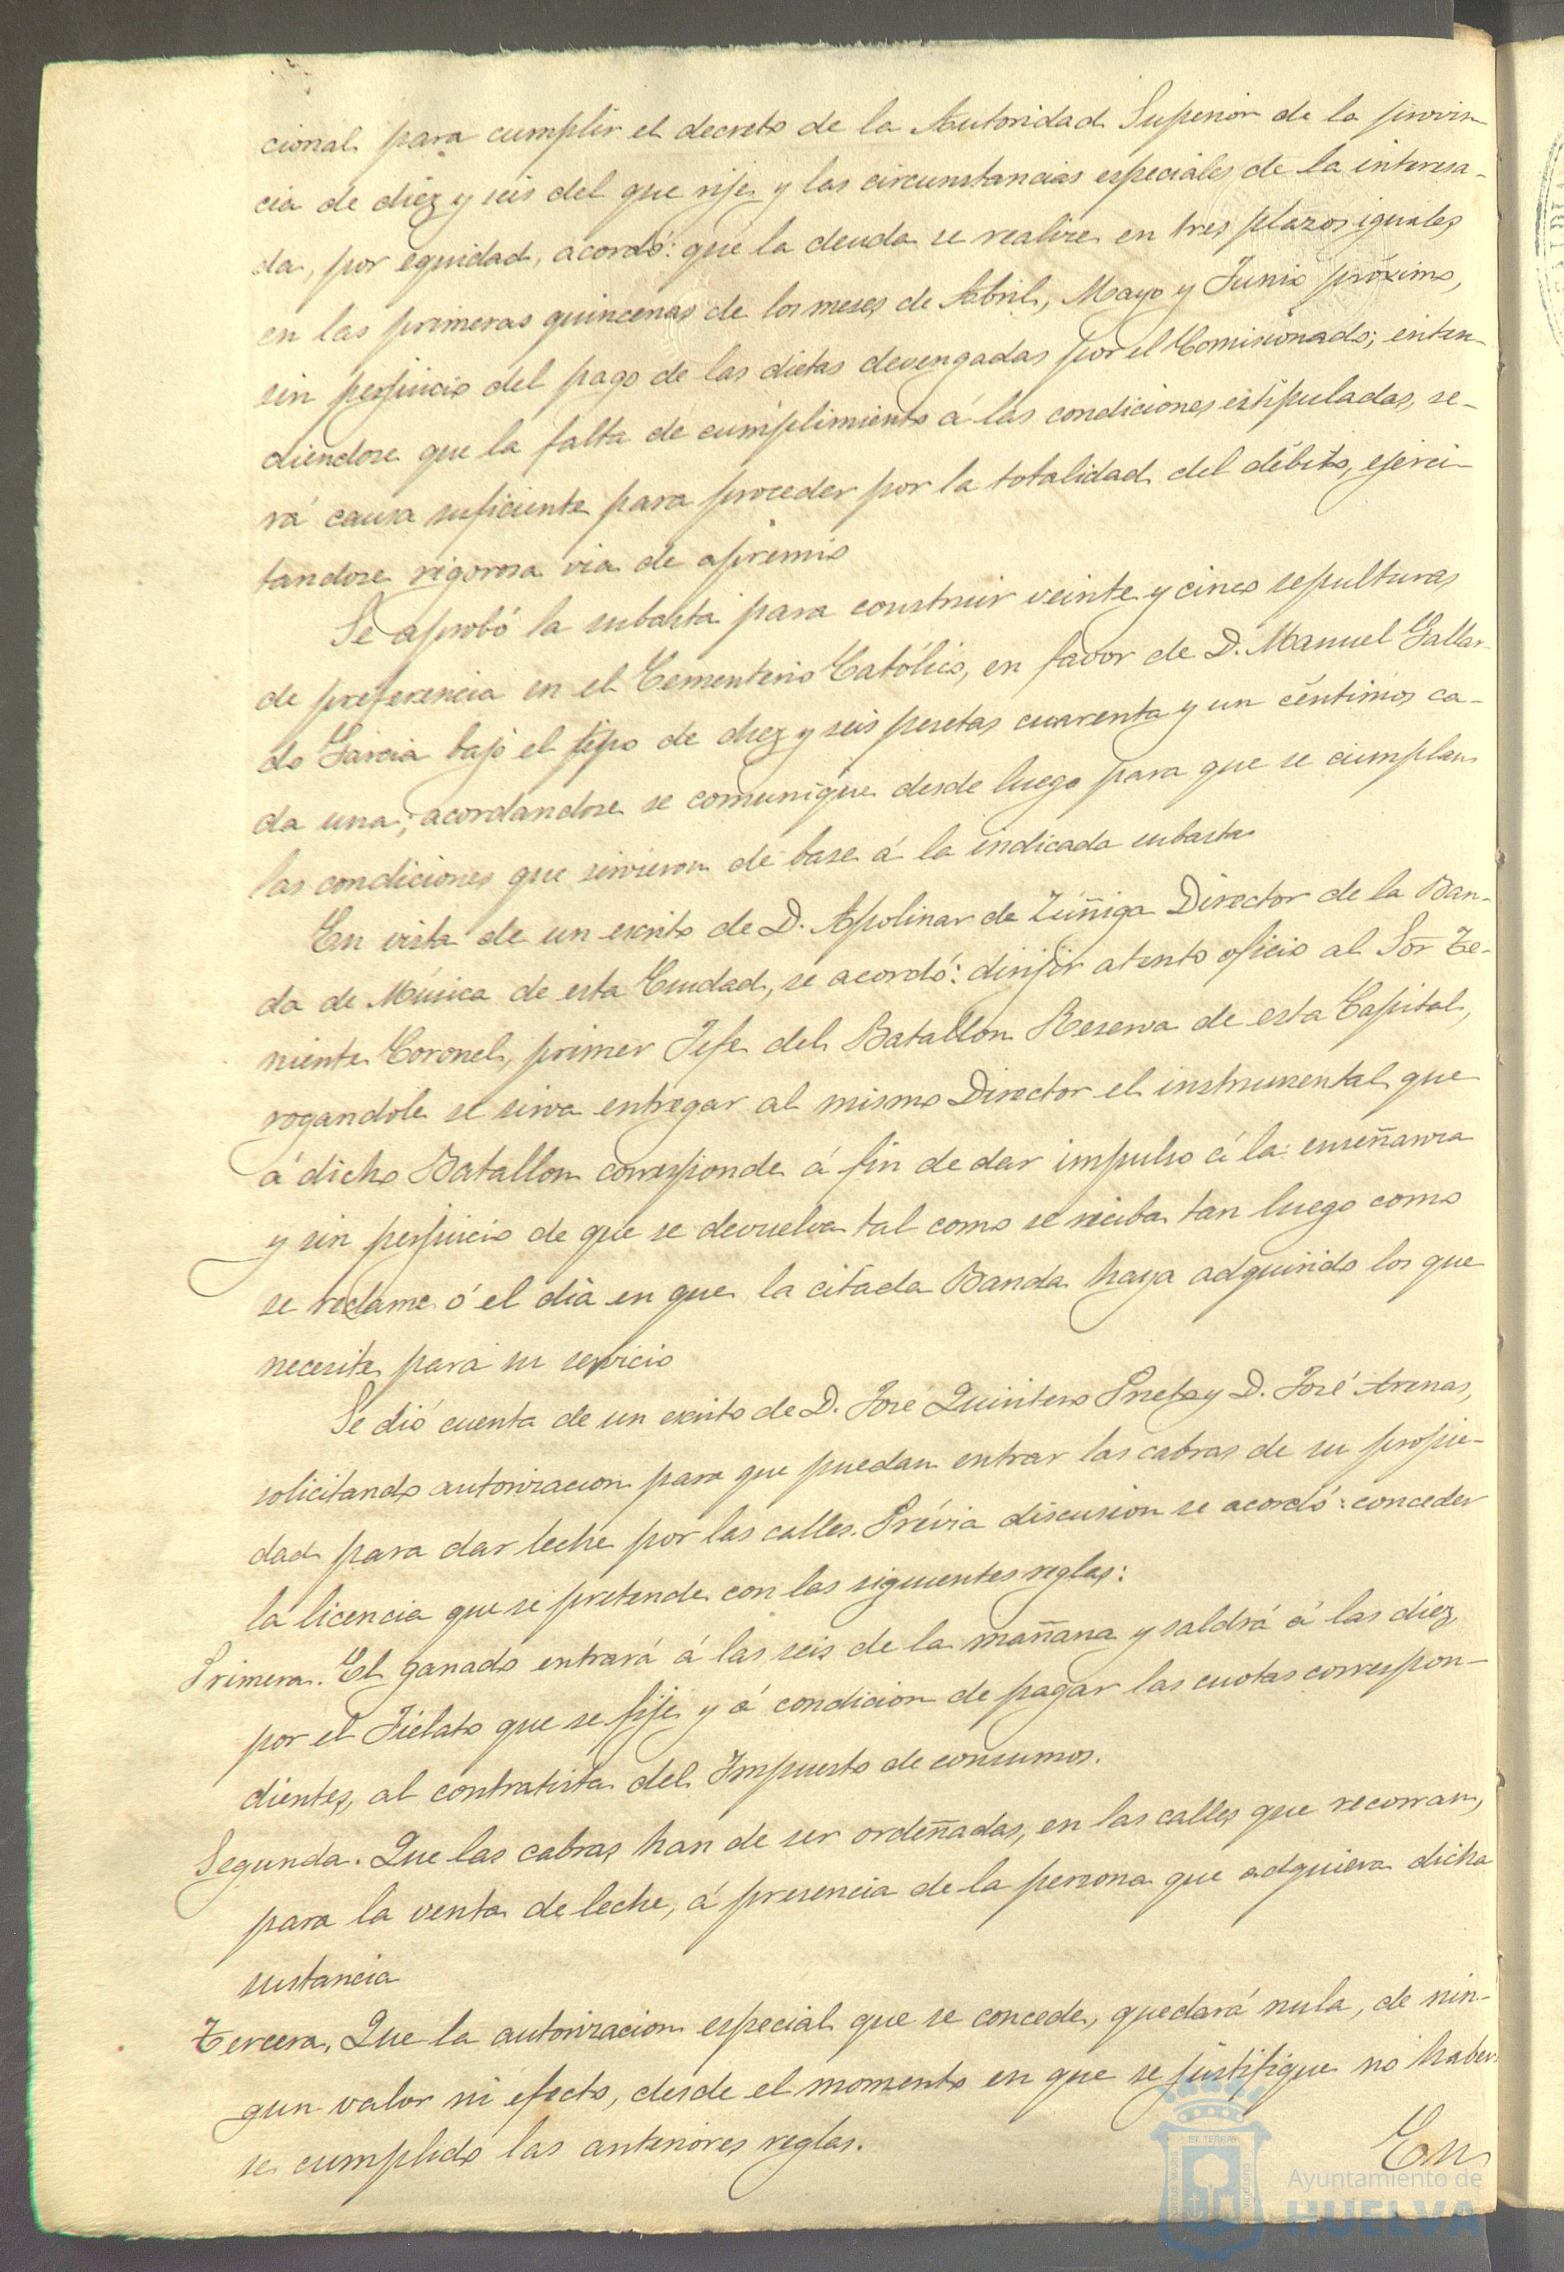 cional para cumplir el decreto de la Autoridad Superior de la provin
cia de diez y seis del que rije y las circunstancias especiales de la interesa-
da, por equidad, acordó: que la deuda se realize en tres plazos iguales
en las primeras quincenas de los meses de Abril, Mayo y Junio próximo,
sin perjuicio del pago de las dietas devengadas por el Comisionado; enten-
diendose que la falta de cumplimiento á las condiciones estipuladas, se-
rá causa suficiente para proceder por la totalidad del débito, ejerci-
tandose rigorosa via de apremio
Se aprobó la subasta para construir veinte y cinco sepulturas
de preferencia en el Cementerio Católico, en favor de D. Manuel Gallar-
do Garcia bajo el tipo de diez y seis pesetas cuarenta y un céntimos ca-
da una; acordandose se comunique desde luego para que se cumplan
las condiciones que sirvieron de base á la indicada subasta
En vista de un escrito de D. Apolinar de Zúñiga Director de la Ban-
da de Música de esta Ciudad, se acordó: dirijir atento oficio al Sor Te-
niente Coronel, primer Jefe del Batallon Reserva de esta Capital,
rogandole se sirva entregar al mismo Director el instrumental que
á dicho Batallon corresponde á fin de dar impulso á la enseñanza
y sin perjuicio de que se devuelva tal como se reciba tan luego como
se reclame ó el dia en que la citada Banda haya adquirido los que
necesite para su servicio
Se dió cuenta de un escrito de D. José Quintero Prieto y D. José Arenas,
solicitando autorizacion para que puedan entrar las cabras de su propie-
dad para dar leche por las calles. Prévia discusion se acordó: conceder
la licencia que se pretende con las siguientes reglas:
Primera. El ganado entrará á las seis de la mañana y saldrá á las diez,
por el Fielato que se fije y á condicion de pagar las cuotas correspon-
dientes, al contratista del Impuesto de consumos.
Segunda. Que las cabras han de ser ordeñadas, en las calles que recorran,
para la venta de leche, á presencia de la persona que adquiera dicha
sustancia
Tercera. Que la autorizacion especial que se concede, quedará nula, de nin-
gun valor ni efecto, desde el momento en que se justifique no haber
se cumplido las anteriores reglas.
En
Ayuntamiento de
HUELVA